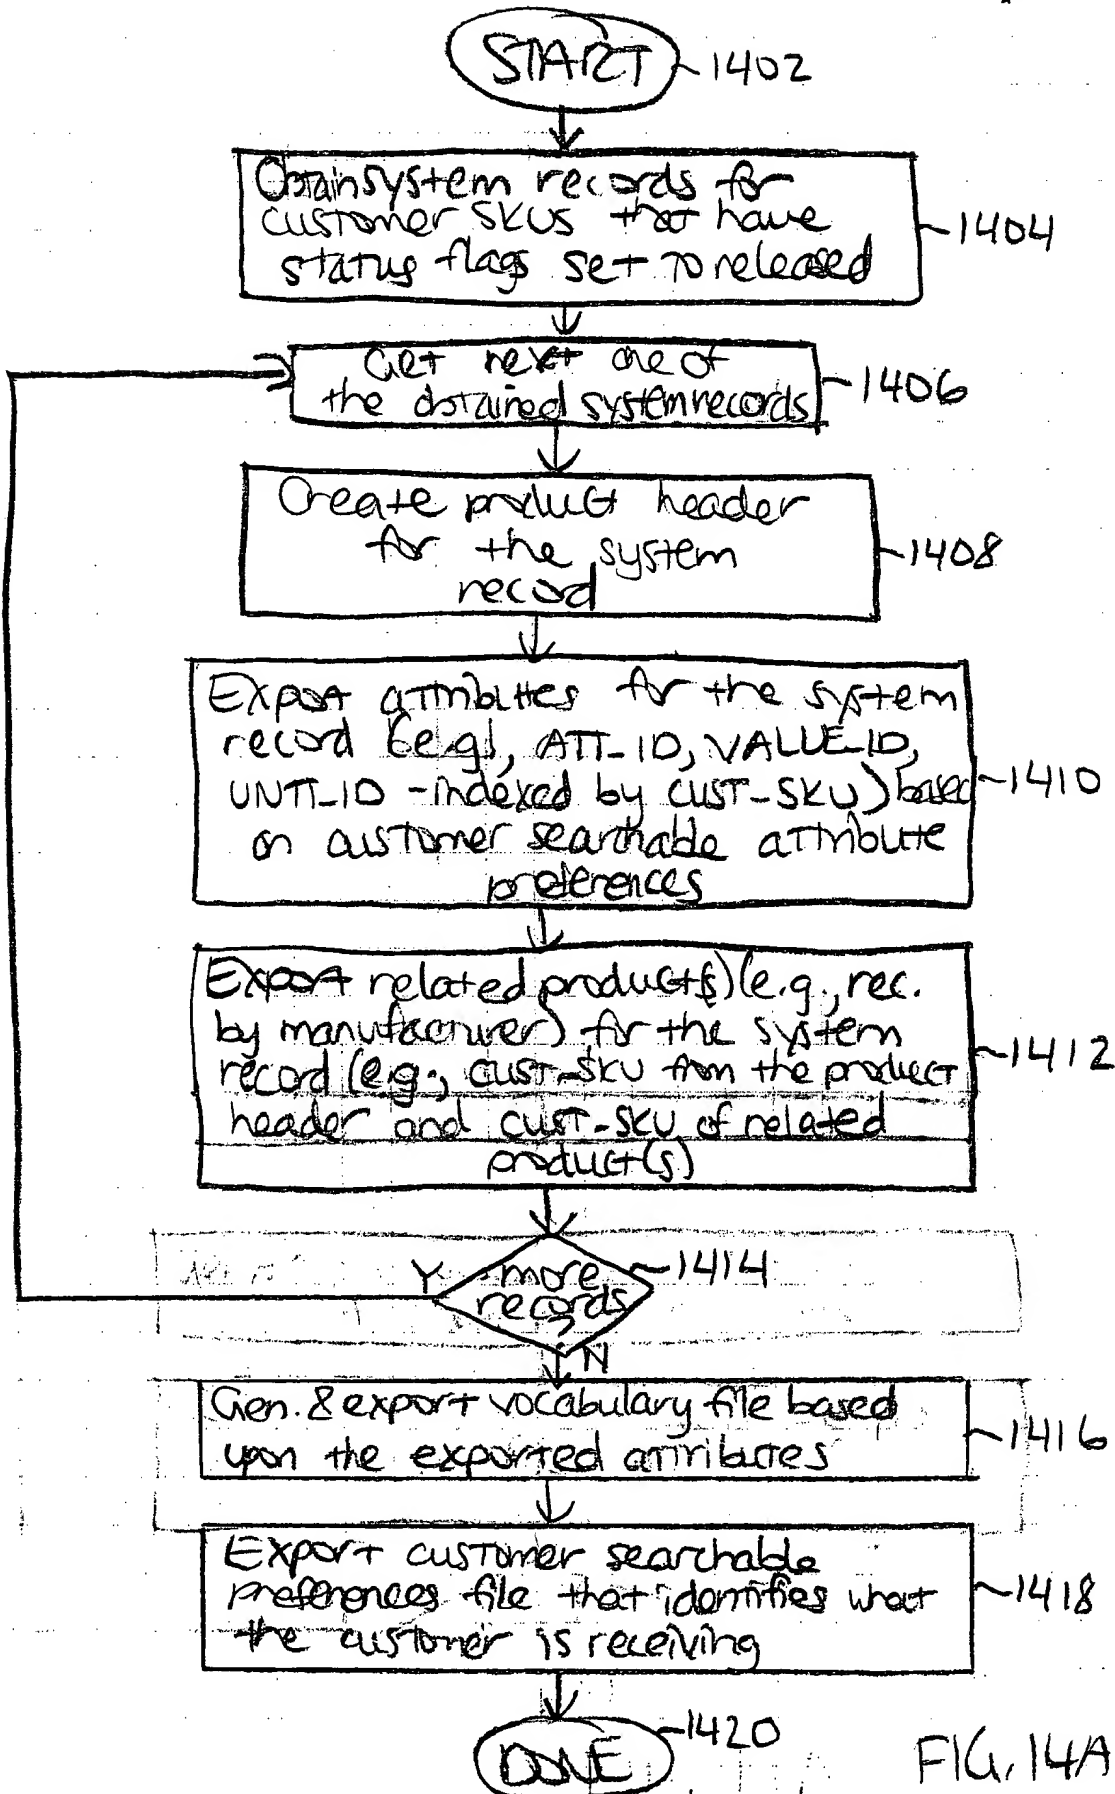 START 1402
Obtain system records for
customer SKUs that have
status flags set to released
1404
Get next one of
the obtained system records
1406
Create product header
for the system
record
1408
Export attributes for the system
record (e.g., ATT_ID, VALUE_ID,
UNIT_ID - indexed by CUST_SKU) based
on customer searchable attribute
preferences
1410
Export related product(s) (e.g., rec.
by manufacturer) for the system
record (e.g., CUST_SKU from the product
header and CUST_SKU of related
product(s)
1412
Y
more
records
?
1414
N
Gen. & export vocabulary file based
upon the exported attributes
1416
Export customer searchable
preferences file that identifies what
the customer is receiving
1418
DONE 1420
FIG. 14A